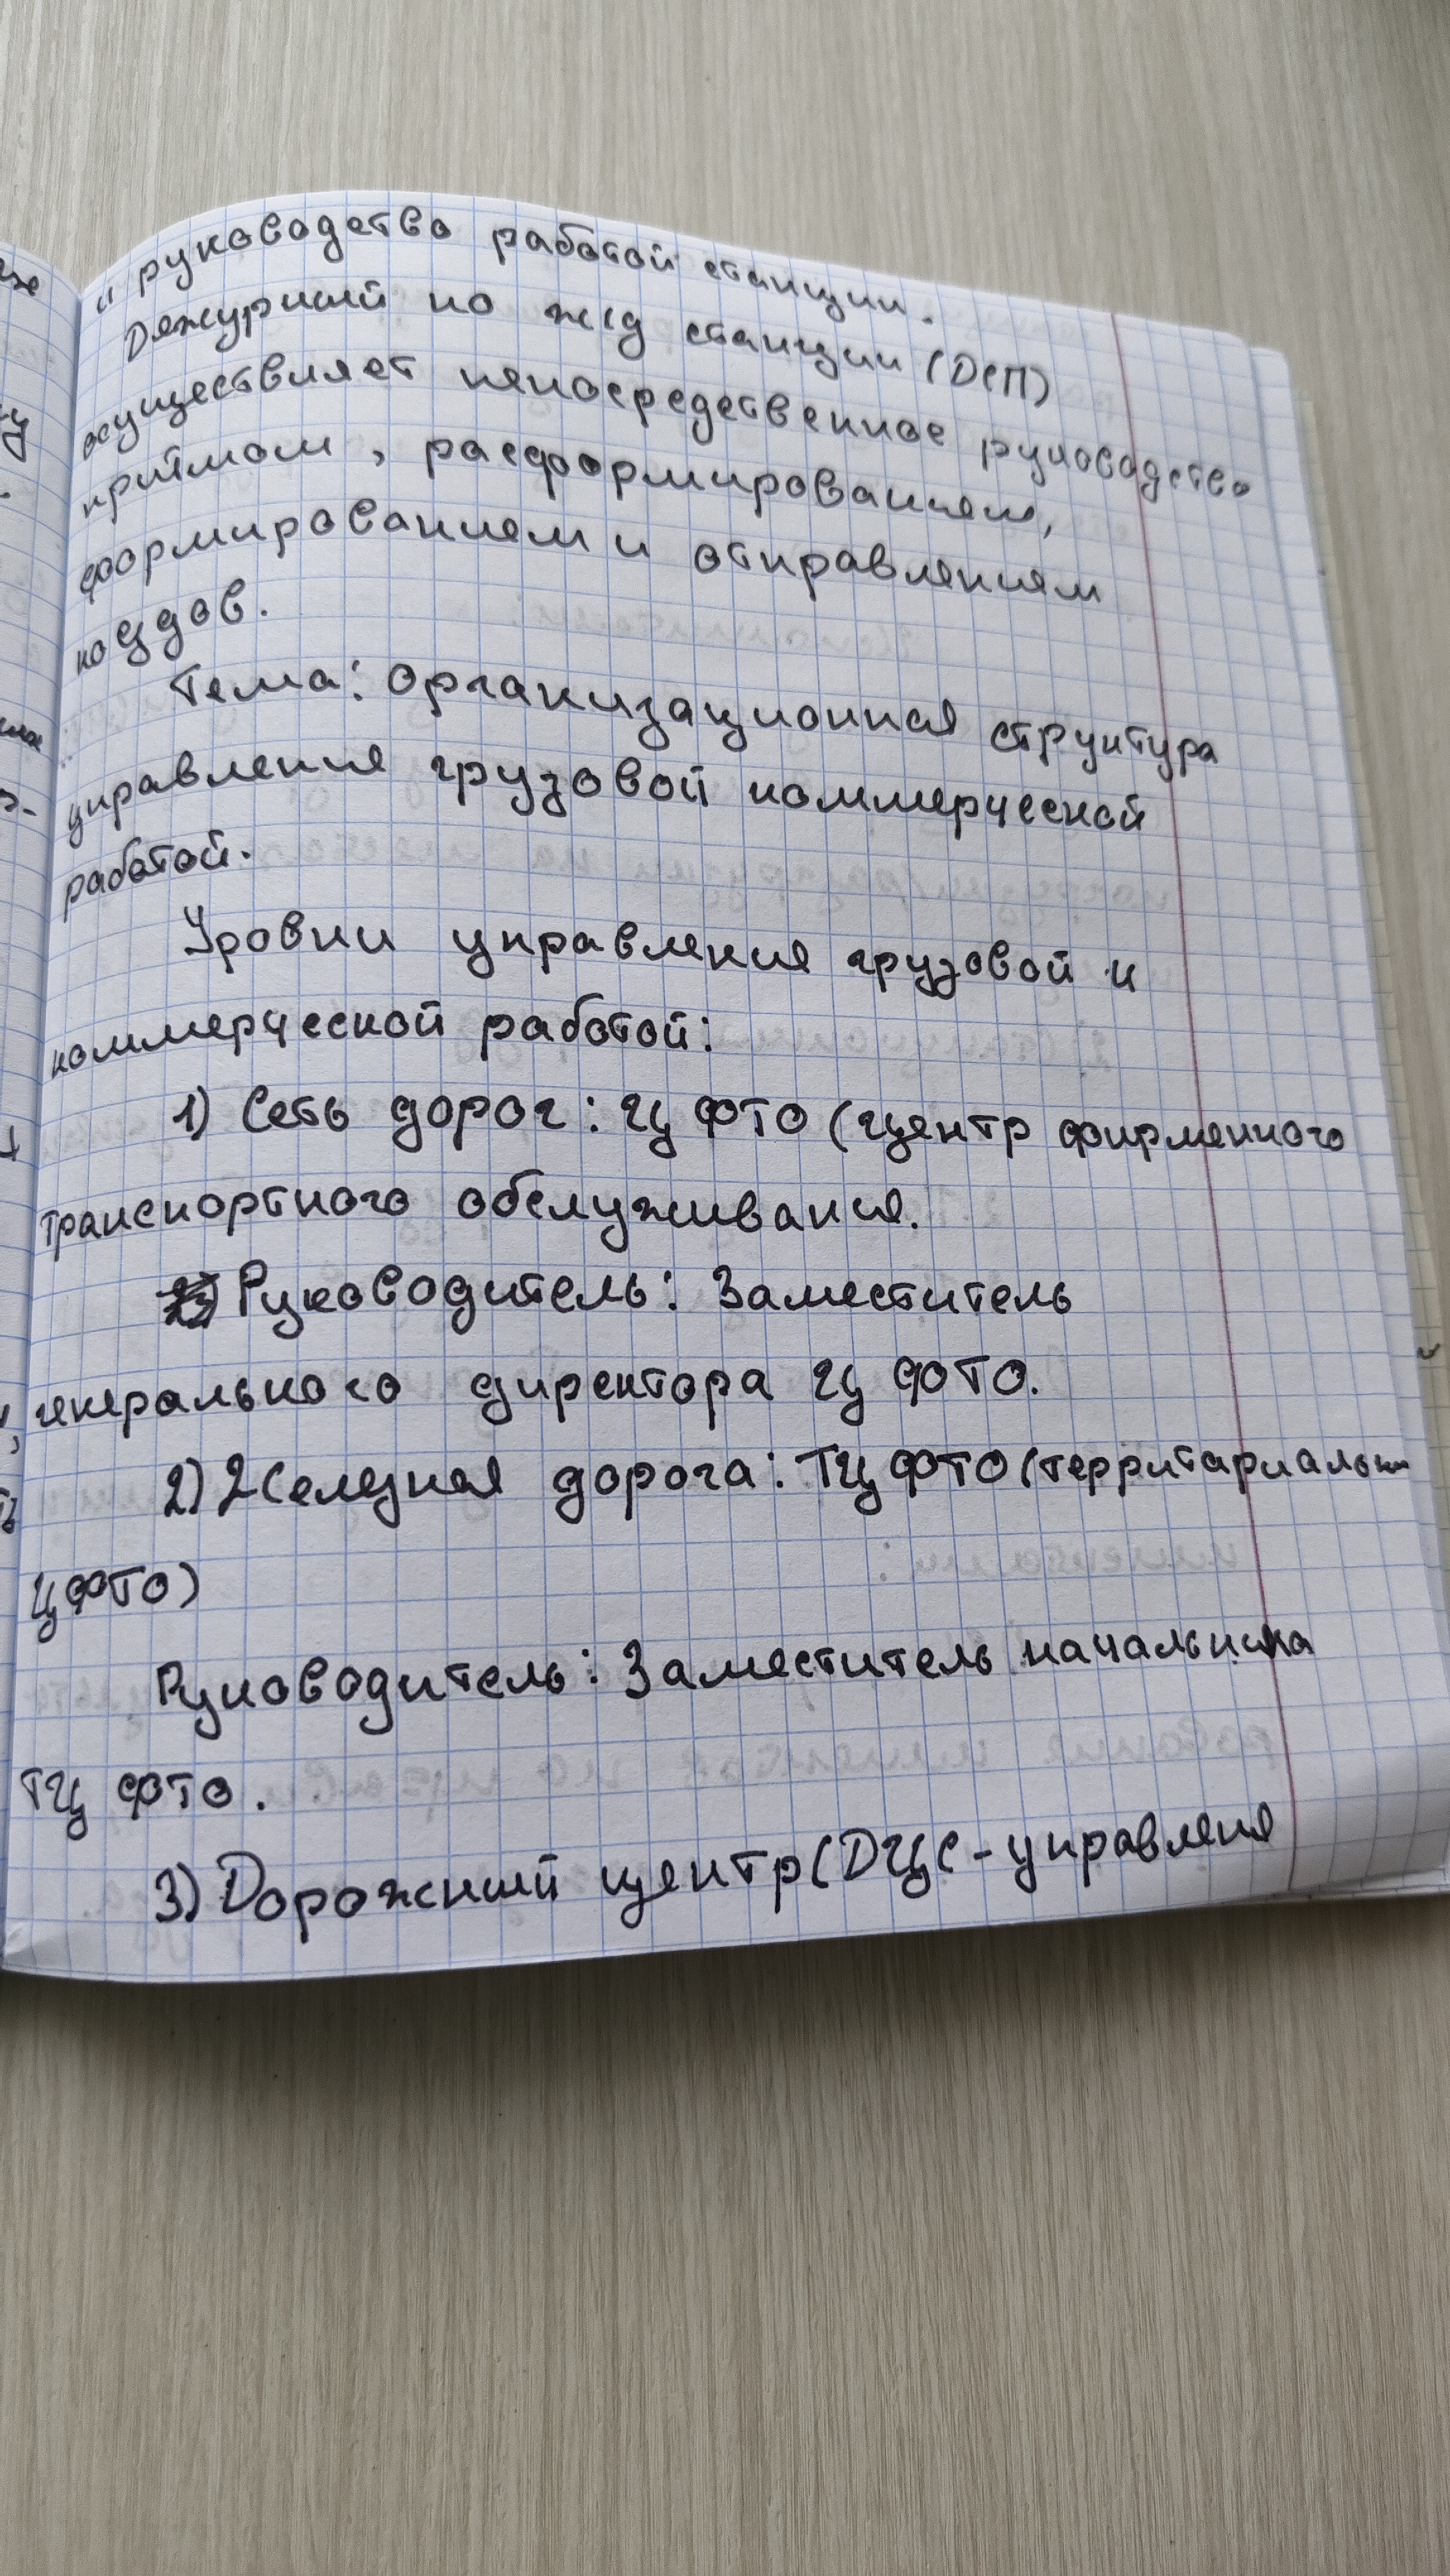 и руководство работой станции.
Дежурный по ж/д станции (ДСП)
осуществляет непосредственное руководство
приёмом, расформированием,
формированием и отправлением
поездов.
Тема: Организационная структура
управления грузовой коммерческой
работой.
Уровни управления грузовой и
коммерческой работой:
1) Сеть дорог: ЦФТО (Центр фирменного
транспортного обслуживания.
Руководитель: Заместитель
генерального директора ЦФТО.
2) Железная дорога: ТЦФТО (территариальн
ЦФТО)
Руководитель: Заместитель начальника
ТЦФТО.
3) Дорожный центр (ДЦС - управления